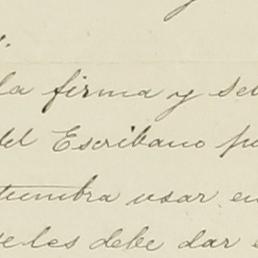 la firma y sel
del Escribano pu
tumbra usar en
se les debe dar